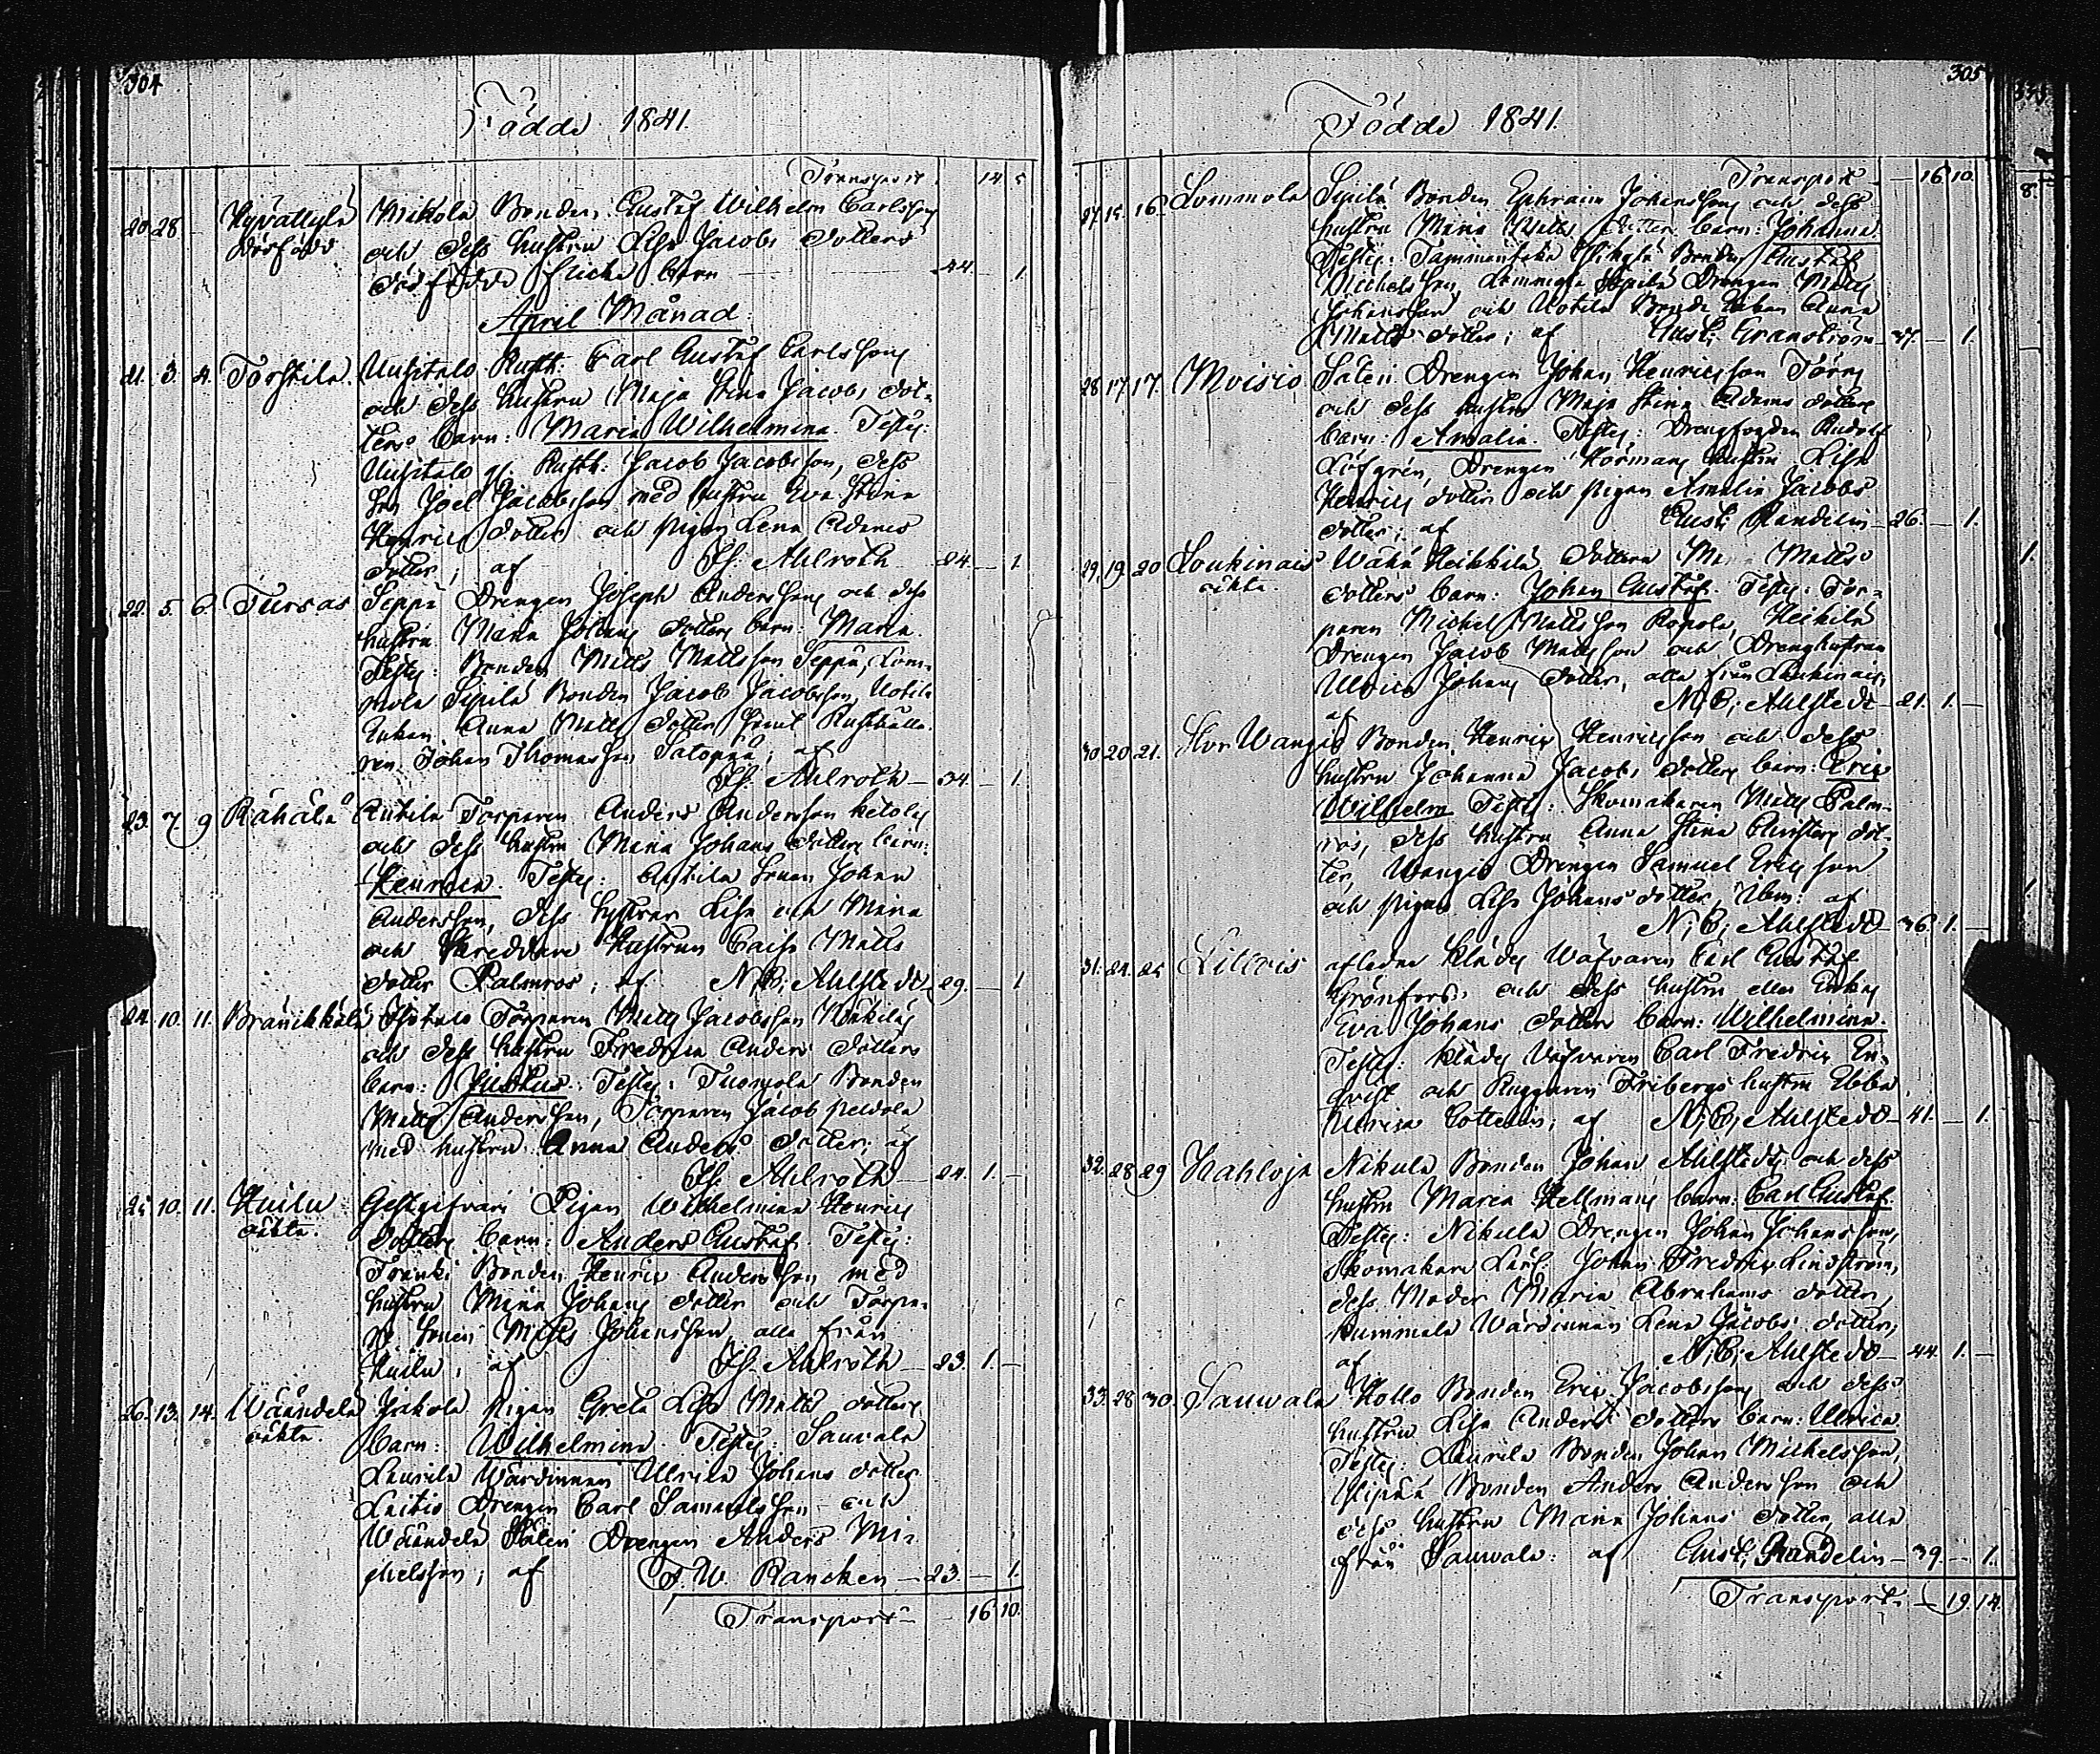 304
Födde 1841.
Transport. 14 5
20 28 — Hyvättylä Mikola Bonden Gustaf Wilhelm Carlssons
dödfödd och dess hustru Lisa Jacobs dotters
dödfödde flicke barn — 44 — 1
April Månad.
21. 3. 4. Torstila. Uusitalo Rusth: Carl Gustaf Carlssons
och dess hustru Maja Stina Jacobs dot-
ters barn: Maria Wilhelmina. Testes:
Uusitalo gl. Rusth: Jacob Jacobsson, dess
Son Joel Jacobsson med hustru Eva Stina
Henrics dotter och pigan Lena Adams
dotter; af Ahlroth 24. — 1
22. 5. 6. Tursas Seppä Drengen Joseph Anderssons och dess
hustru Maria Johans dotters barn: Maria.
Testes: Bonden Matts Mattsson Seppä, Lom-
mola Sipilä Bonden Jacob Jacobsson, Uotila
Enkan Anna Matts dotter samt Rusthålla-
ren Johan Thomasson Satopää; af
Ahlroth — 34. — 1
23. 7. 9 Rähälä Anttila Torparen Anders Andersson Ketolas
och dess hustru Maria Johans dotters barn:
Henrica. Testes: Anttila Sonen Johan
Andersson, dess Systrar Lisa och Maria
och Skreddare Hustrun Caisa Matts
dotter Palmros; af N. B; Ahlstedt 29. — 1
24. 10. 11. Bränikkälä Isotalo Torparen Matts Jacobsson
och dess hustru Fredrica Anders dotters
barn: Justus. Testes: Tuomola Bonden
Matts Andersson, Torparen Jacob
med hustru Anna Anders dotter; af
Ahlroth — 24. 1. —
25. 10. 11. Huilu Gestgifveri Pigan Wilhelmina Henrics
oäkta. Dotters barn: Anders Gustaf. Testes:
Franki Bonden Henric Andersson med
hustru Maria Johans dotter och Torpa-
re Sonen Matts Johansson, alla från
Huilu; af Ahlroth — 23. 1. —
26. 13. 14. Wäändelä Jakola pigan Greta Lisa Matts dotters
oäkta. barn: Wilhelmina. Testes: Sauvala
Laurila Wärdinnan Ulrica Johans dotter
Laitis Drengen Carl Samuelsson och
Wäändelä Säteri Drengen Anders Mi-
chelsson; af F. W. Rancken — 23. — 1.
Transport — 16 10.
305
Födde 1841.
Transport — 16 10.
27. 15. 16. Lommola Sipilä Bonden Ephraim Johanssons och dess
hustru Maria Matts dotters barn: Johanna.
Testes: Bonden Gustaf
Michelsson, Lommola Sipilä Drengen Matts
Johansson och Uotila Bonde Enkan Anna
Matts dotter; af Gust; Granström — 37. — 1.
28 17. 17. Moisio Säteri Drengen Johan Henricsson Törns
och dess hustru Maja Stina Adams dotters
barn: Amalia. Testes: Drengfogden Rudolf
Löfgrén, Drengen Hörmans hustru Lisa
Henrics dotter och pigan Amalia Jacobs
dotter; af Gust; Randelin — 26. — 1.
29. 19. 20 Loukinais Wähä Heikkilä dottren Matts
oäkta. dotters barn: Johan Gustaf. Testes: Tor-
paren Michel Mattsson Ropola, Heikilä
Drengen Jacob Mattsson och Drenghustrun
Ulrica Johans dotter, alla från Loukinais,
af N; B; Ahlstedt — 21. 1. —
30 20 21. Stor Wangio Bonden Henric Henricsson och dess
hustru Johanna Jacobs dotters barn: Eric
Wilhelm. Testes: Skomakaren Matts Palm-
ros, dess hustru Anna Stina Christers dot-
ter, Wangio Drengen Samuel Ericsson
och pigan Lisa Johans dotter, ibm: af
N; B; Ahlstedt — 36. 1. —
31. 24. 25 aflidne Klädes Wäfvaren Carl Gustaf
Grönfors och dess hustru eller Enkas
Eva Johans dotters barn: Wilhelmina.
Testes: Klädes Wäfvaren Carl Fredric En-
qvist och Ruggaren Fribergs hustru Ebba
af N; B; Ahlstedt — 41. — 1.
32. 28 29 Kahloja Nikula Bonden Johan Ahlstedts och dess
hustru Maria Hellmans barn: Carl Gustaf.
Testes: Nikula Drengen Johan Johansson,
Skomakare Lärl: Johan Fredric Lindström,
dess Moder Maria Abrahams dotter,
Wärdinnan Lena Jacobs dotter,
af N; B; Ahlstedt — 44. 1. —
33. 28 30. Sauwala Kollo Bonden Eric Jacobssons och dess
hustru Lisa Anders dotters barn: Ulrica
Testes: Laurila Bonden Johan Michelsson,
Ylipää Bonden Anders Andersson och
dess hustru Maria Johans dotter, alla
från Sauwala: af Gust; Randelin — 39. — 1.
Transport — 19. 14.